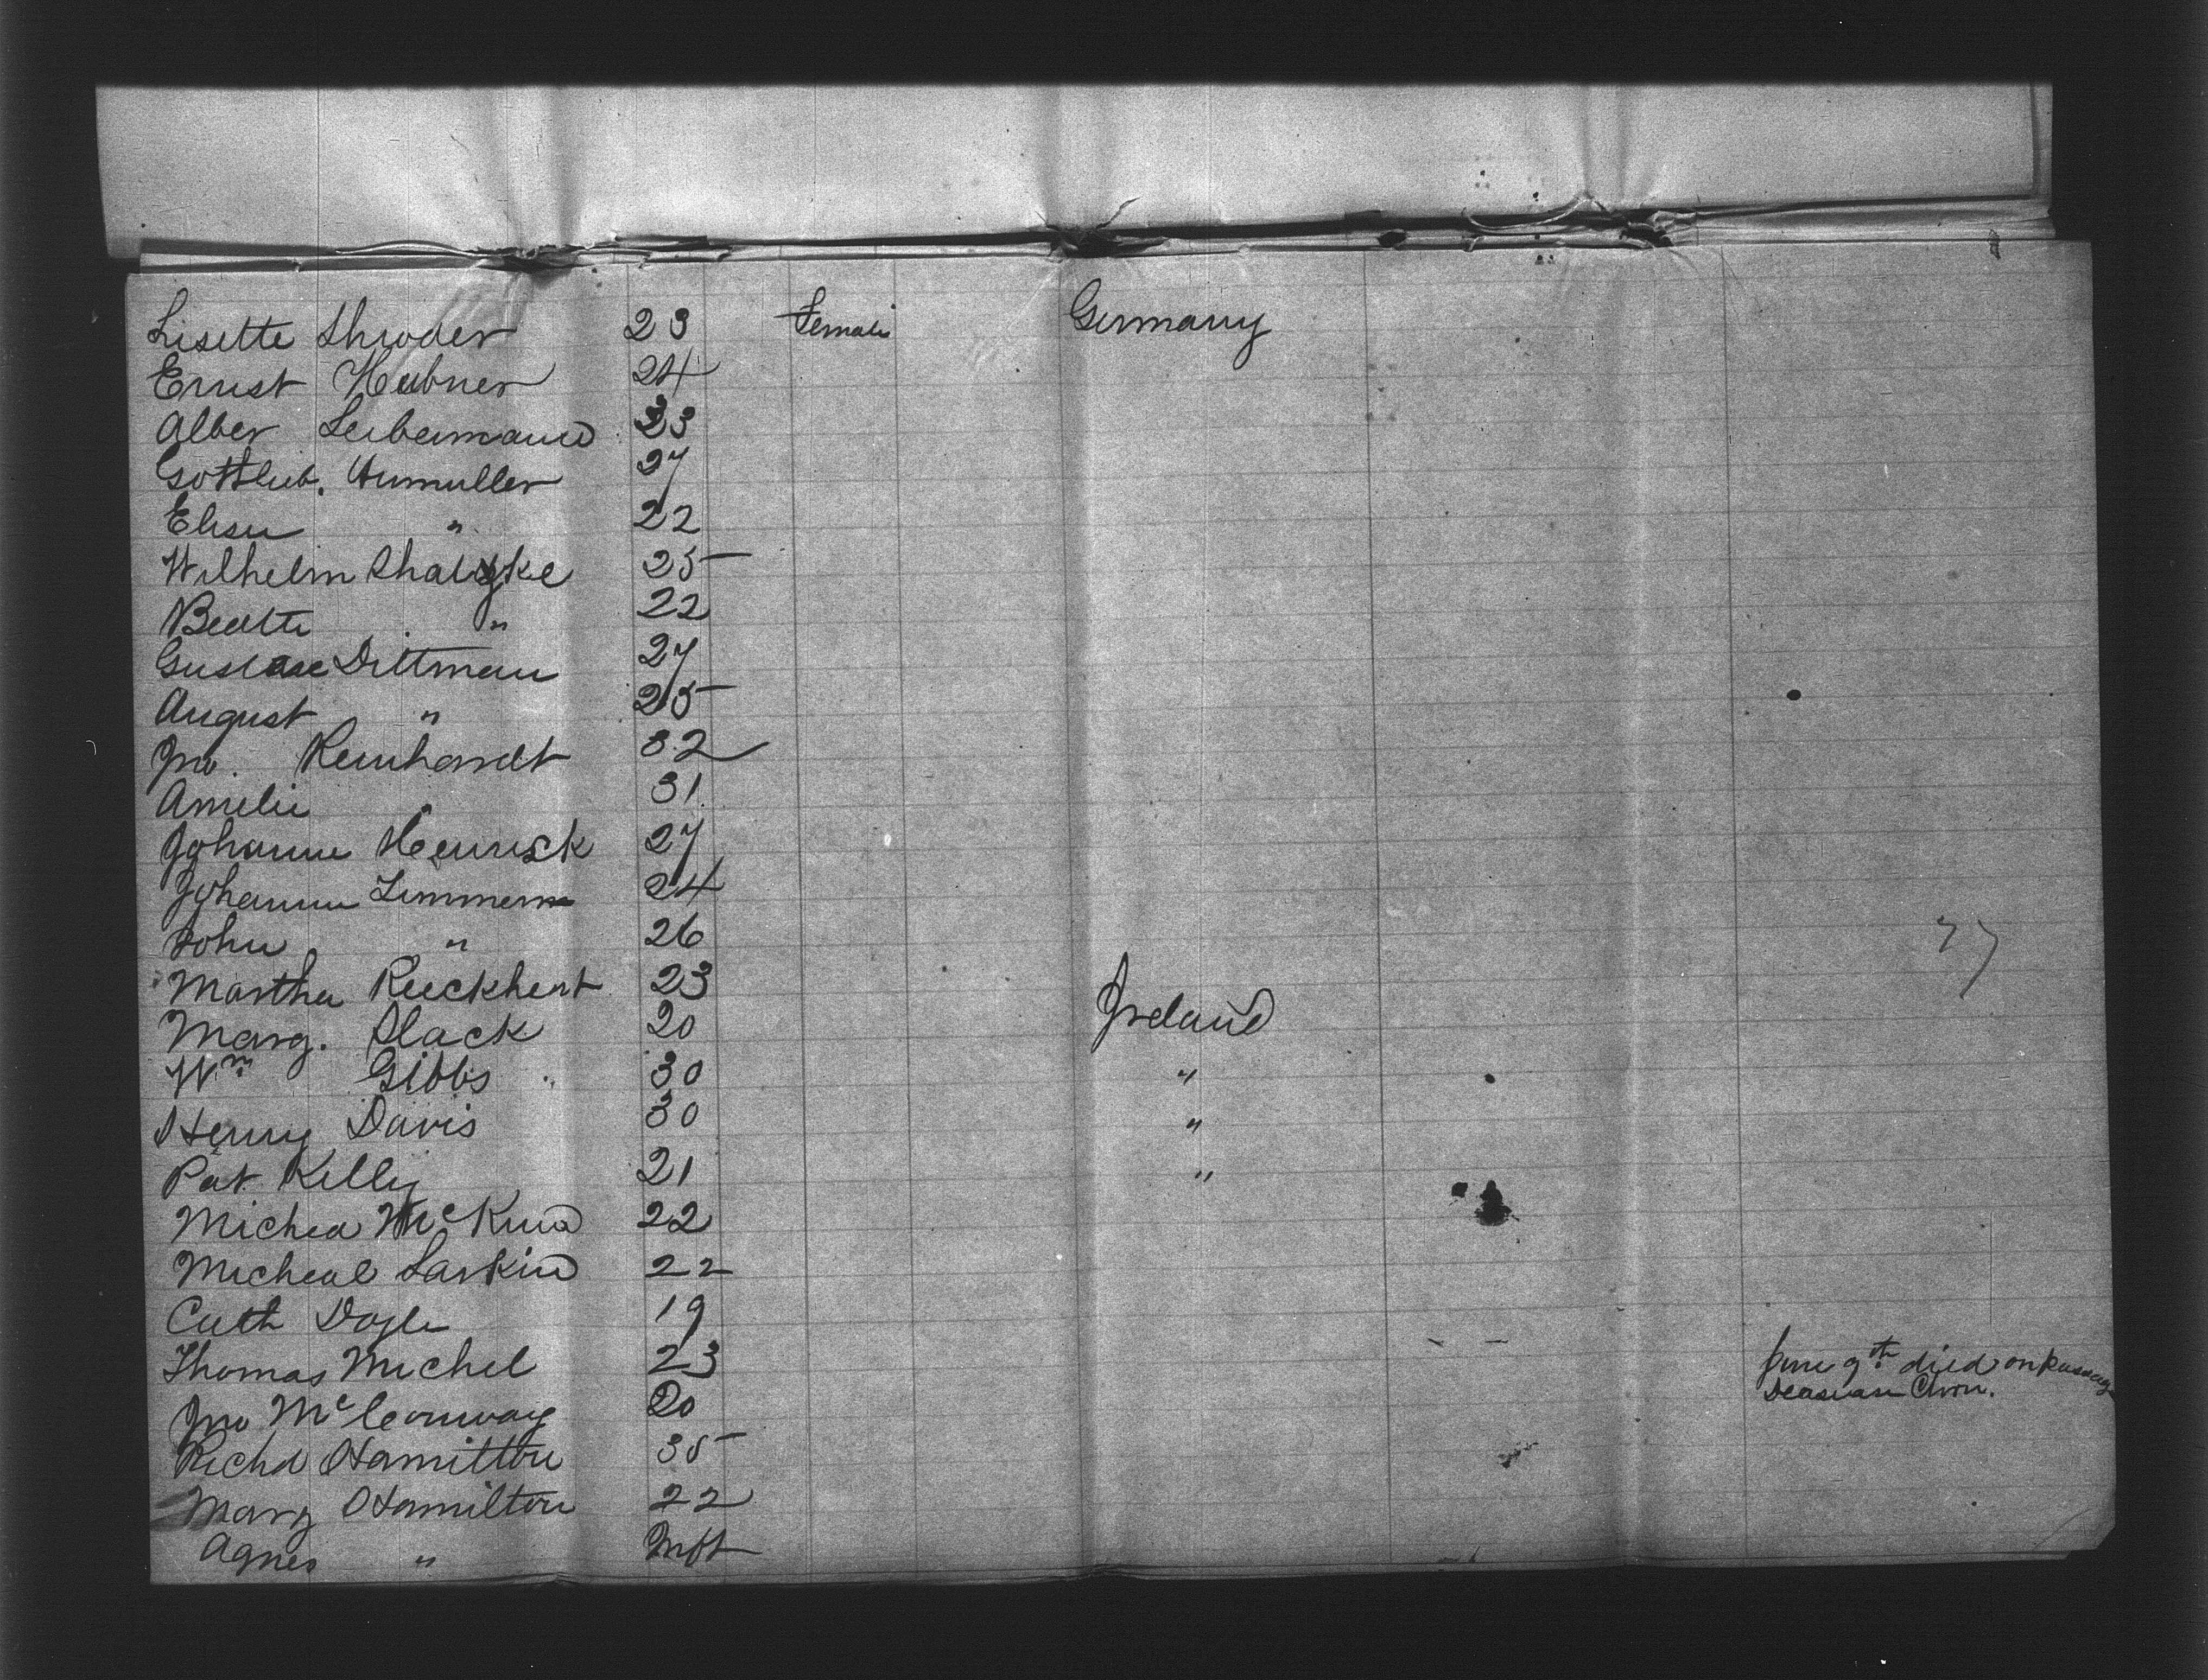 Lisette Shroder 23 Female Germany
Ernst Hubner 24
Alber Leibermann 33
Gottlieb. 27
Elise " 22
Wilhelm 25
Beatte " 22
Gustave Dittman 27
August " 25
Jno. Reinhardt 32
Amelie 31
Johanne 27
Johanne Zimmerm 24
John " 26
Martha Rieckhert 23
Marg. Slack 20 Ireland
Wm Gibbs 30 "
Henry Davis 30 "
Pat Kelly 21 "
Michea 22
Micheal Larkin 22
Cath Doyle 19
Thomas Michel 23 June 9th died on Passage
Jno McConway 20
Richd Hamilton 35
Mary Hamilton 22
Agnes " Inft
77